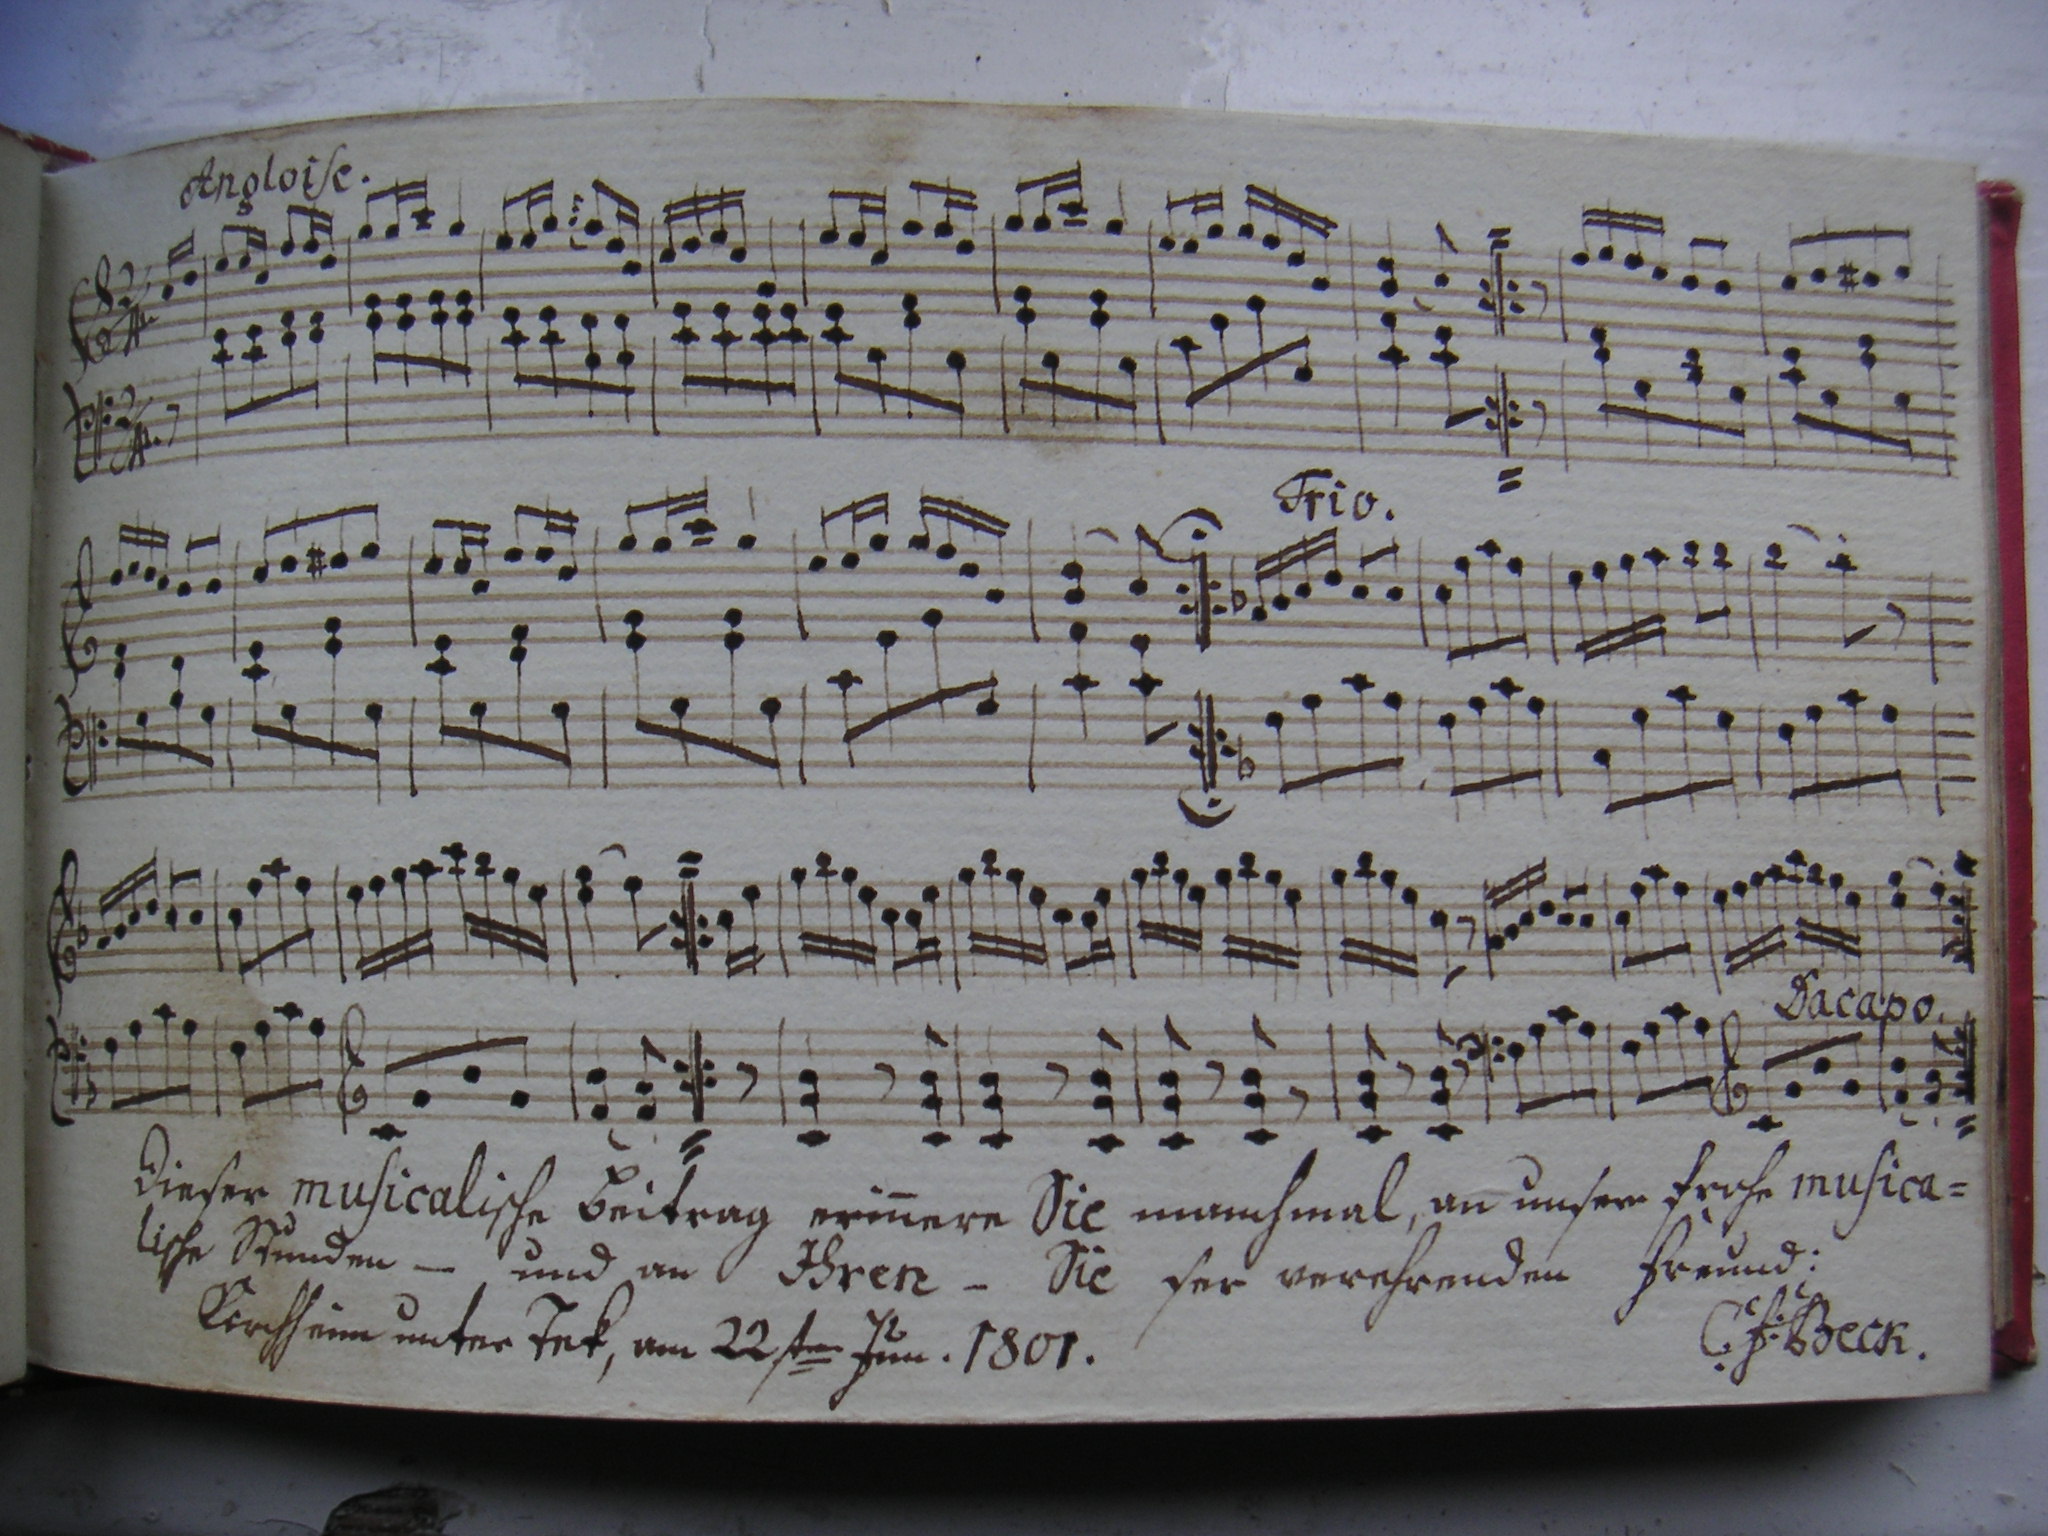 Angloise.
Trio.
Dacapo.
Dieser musicalische Beitrag erinnere Sie manchmal, an unsere frohe musica=
lische Stunden – und an Ihren – Sie ser verehrenden Freund:
Kirchheim unter Tek, am 22sten Jun. 1801.
C. F. Beck.